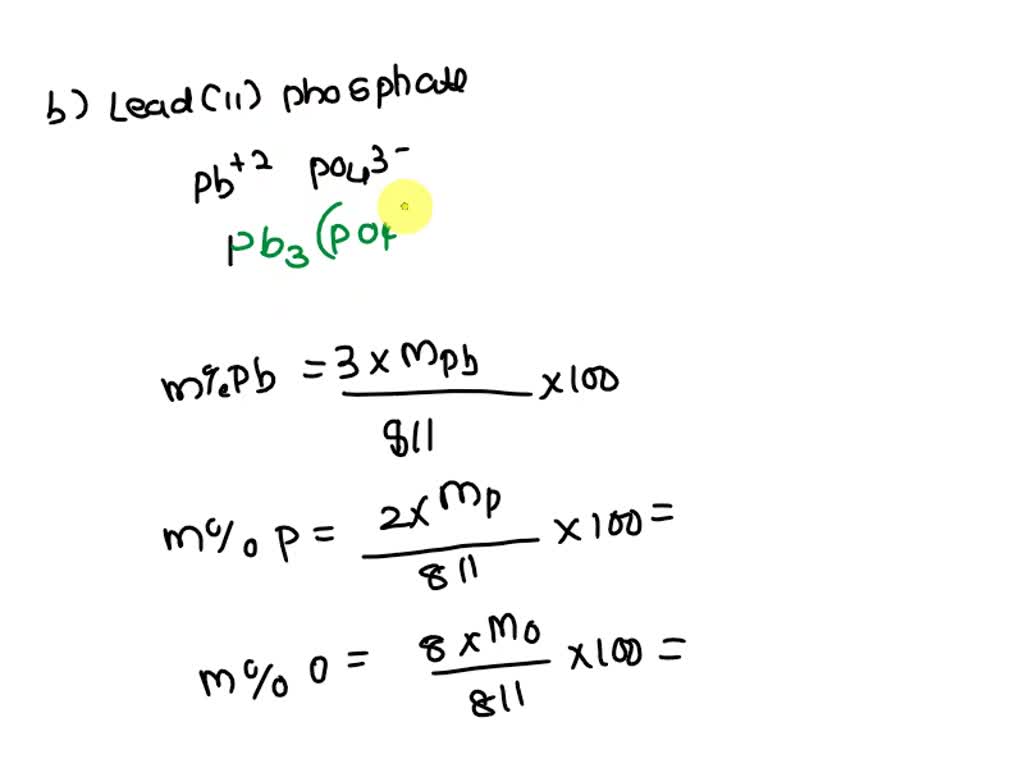 b) Lead(II) phosphate
Pb+2 PO43-
Pb3(PO4
m%Pb = 3 x MPb
811
x100
m% P = 2x MP
811
x100 =
m% O = 8 x MO
811
x100 =